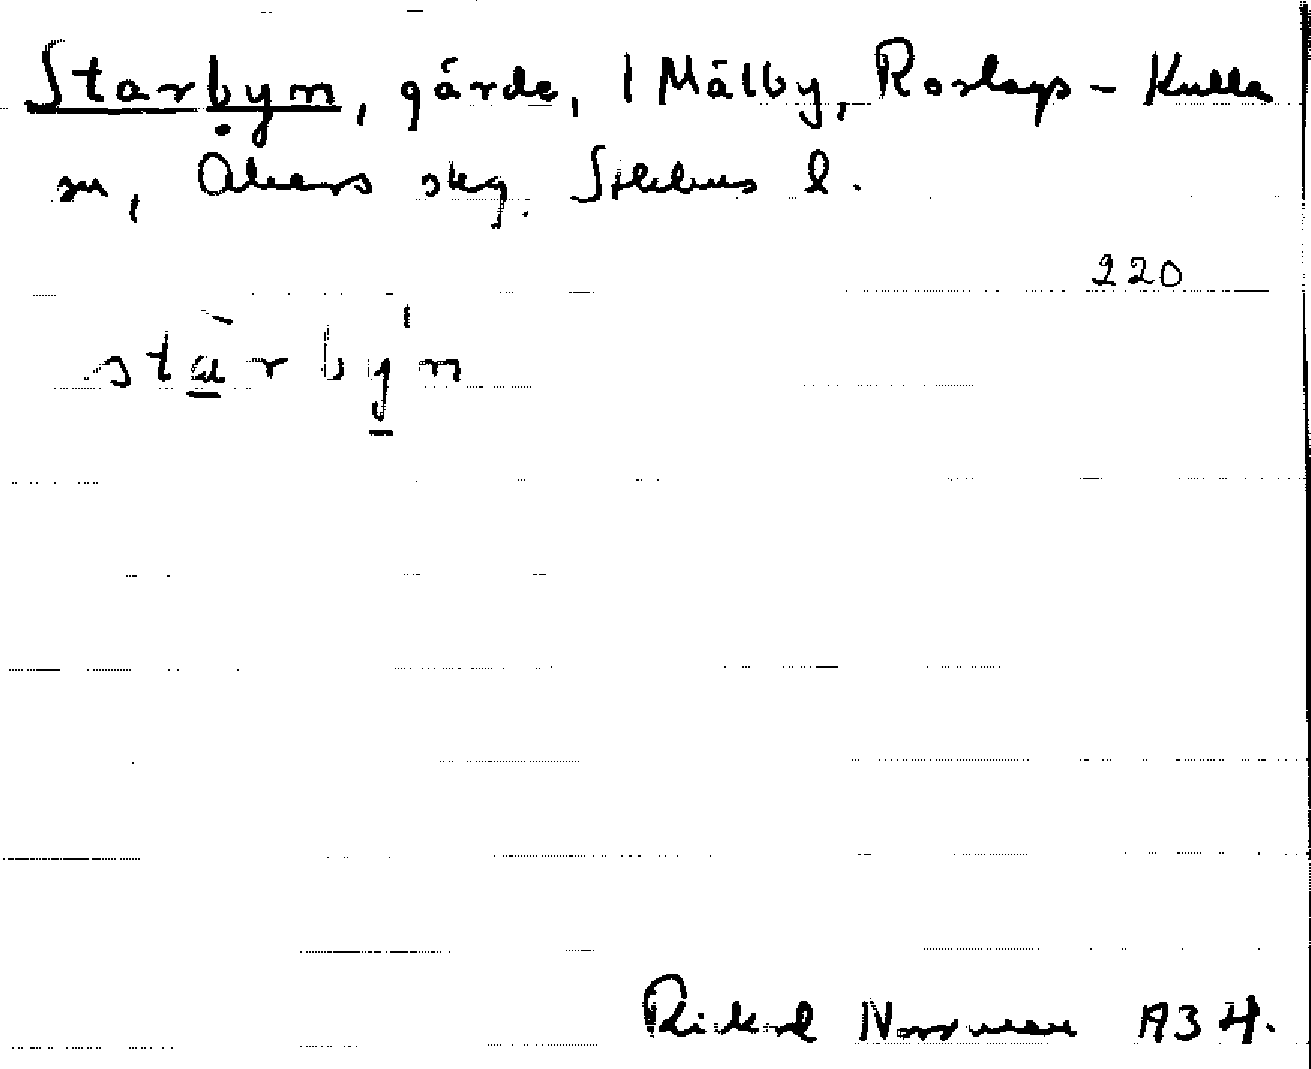 Starbyn, gärde, 1 Mälby, Roslags-Kulla
sn, Åkers skg. Sthlms l.
220
stàrby'n
Rickard Norrman 1934.